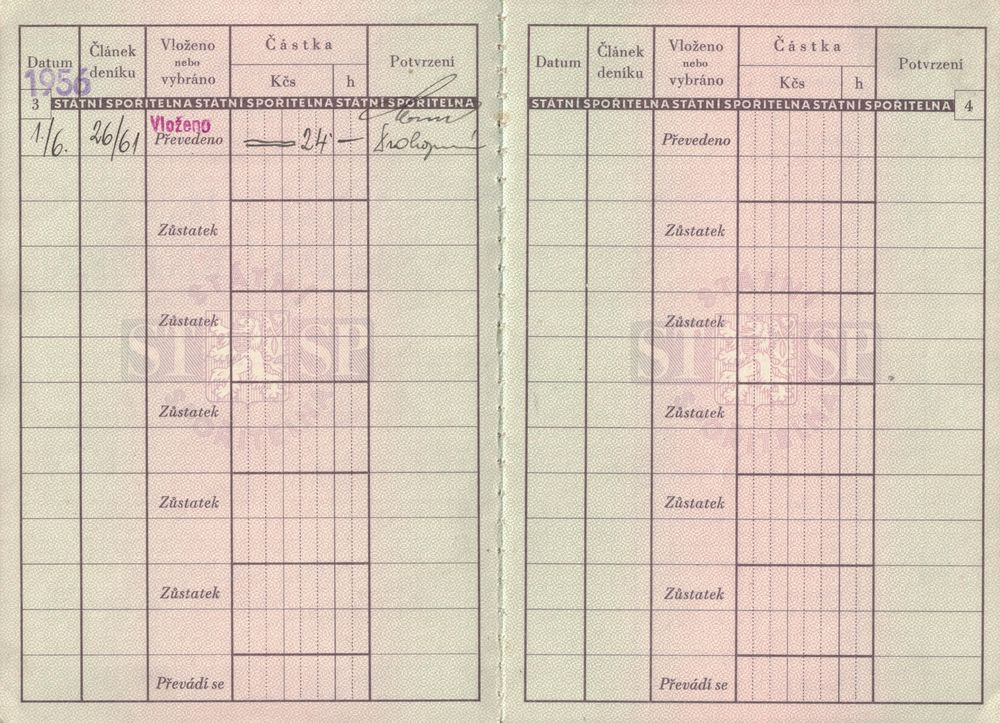 Datum
Článek
deníku
Vloženo
nebo
vybráno
Částka
Kčs
h
Potvrzení
1956
3
STÁTNÍ SPOŘITELNA STÁTNÍ SPOŘITELNA STÁTNÍ SPOŘITELNA
1/6.
26/61
Vloženo
Převedeno
24 —
Zůstatek
Zůstatek
Zůstatek
Zůstatek
Zůstatek
Převádí se
ST SP
Datum
Článek
deníku
Vloženo
nebo
vybráno
Částka
Kčs
h
Potvrzení
STÁTNÍ SPOŘITELNA STÁTNÍ SPOŘITELNA STÁTNÍ SPOŘITELNA
4
Převedeno
Zůstatek
Zůstatek
Zůstatek
Zůstatek
Zůstatek
Převádí se
ST SP